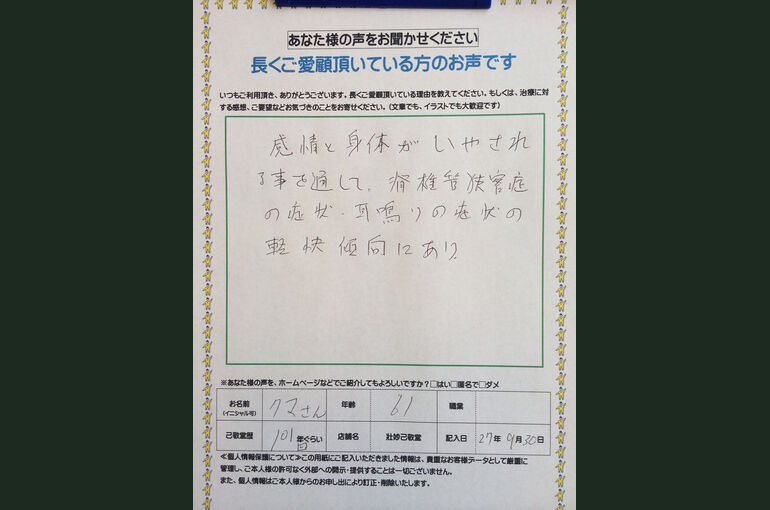 あなた様の声をお聞かせください
長くご愛顧頂いている方のお声です
いつもご利用頂き、ありがとうございます。長くご愛顧頂いている理由を教えてください。もしくは、治療に対
する感想、ご要望などお気づきのことをお寄せください。(文章でも、イラストでも大歓迎です)
感情と身体がいやされ
る事を通して、脊椎管狭窄症
の症状・耳鳴りの症状の
軽快傾向にあり
※あなた様の声を、ホームページなどでご紹介してもよろしいですか?□はい□匿名で□ダメ
お名前 クマさん 年齢 61 職業
(イニシャル可)
己敬堂歴 101 年ぐらい 店舗名 壮妙己敬堂 記入日 27年 9月30日
回
≪個人情報保護について≫この用紙にご記入いただきました情報は、貴重なお客様データとして厳重に
管理し、ご本人様の許可なく外部への開示・提供することは一切ございません。
また、個人情報はご本人様からのお申し出により訂正・削除いたします。